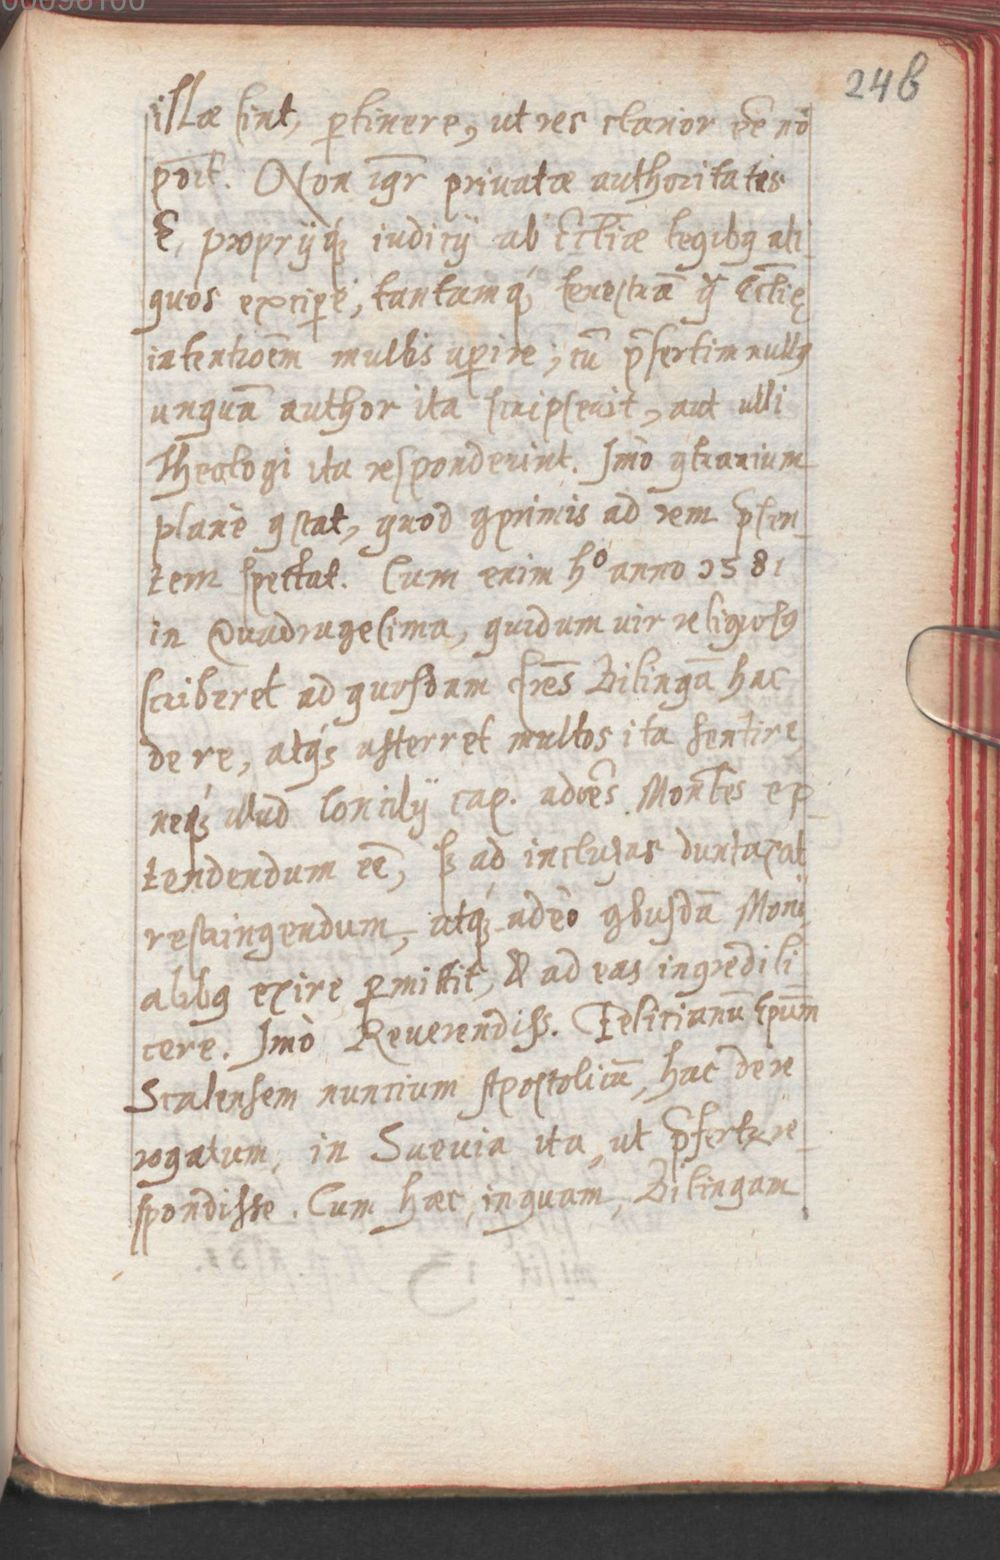 00096100
248
illæ sint, p̱tinere, ut res clarior eē nō
pōit. Non igr̄ privatæ authoritatis
ē, proprijq́ꝫ iudicij ab Eccl̄iæ legibꝰ ali
quos excipe, tantamq́ꝫ fenestrā Eccl̄ię
intentioēm multis aperire, cū p̄sertim nullꝰ
unquā author ita scripserit, aut ulli
Theologi ita responderint. Imò ꝯtrarium
planè ꝯstat, quod ꝯprimis ad rem p̄sen
tem spectat. Cum enim hº anno 1581
in Quadragesima, quidam uir religiosꝰ
scriberet ad quosdam fr̄es Dilingā hac
de re, atq́ꝫ afferret multos ita sentire,
neq́ꝫ illud Concilij cap. ad oēs Mon̄les ex
tendendum eē, sꝫ ad inclusas duntaxat
restringendum, atq́ꝫ adeò qbusdā Moni
alibꝰ exire p̱mittit, & ad eas ingredi li
cere. Imò Reverendiss. Felicianū Ep̄um
Scalensem nuncium Apostolicū, hac de re
rogatum, in Suevia ita, ut p̄fertr re
spondisse. Cum hæc, inquam, Dilingam